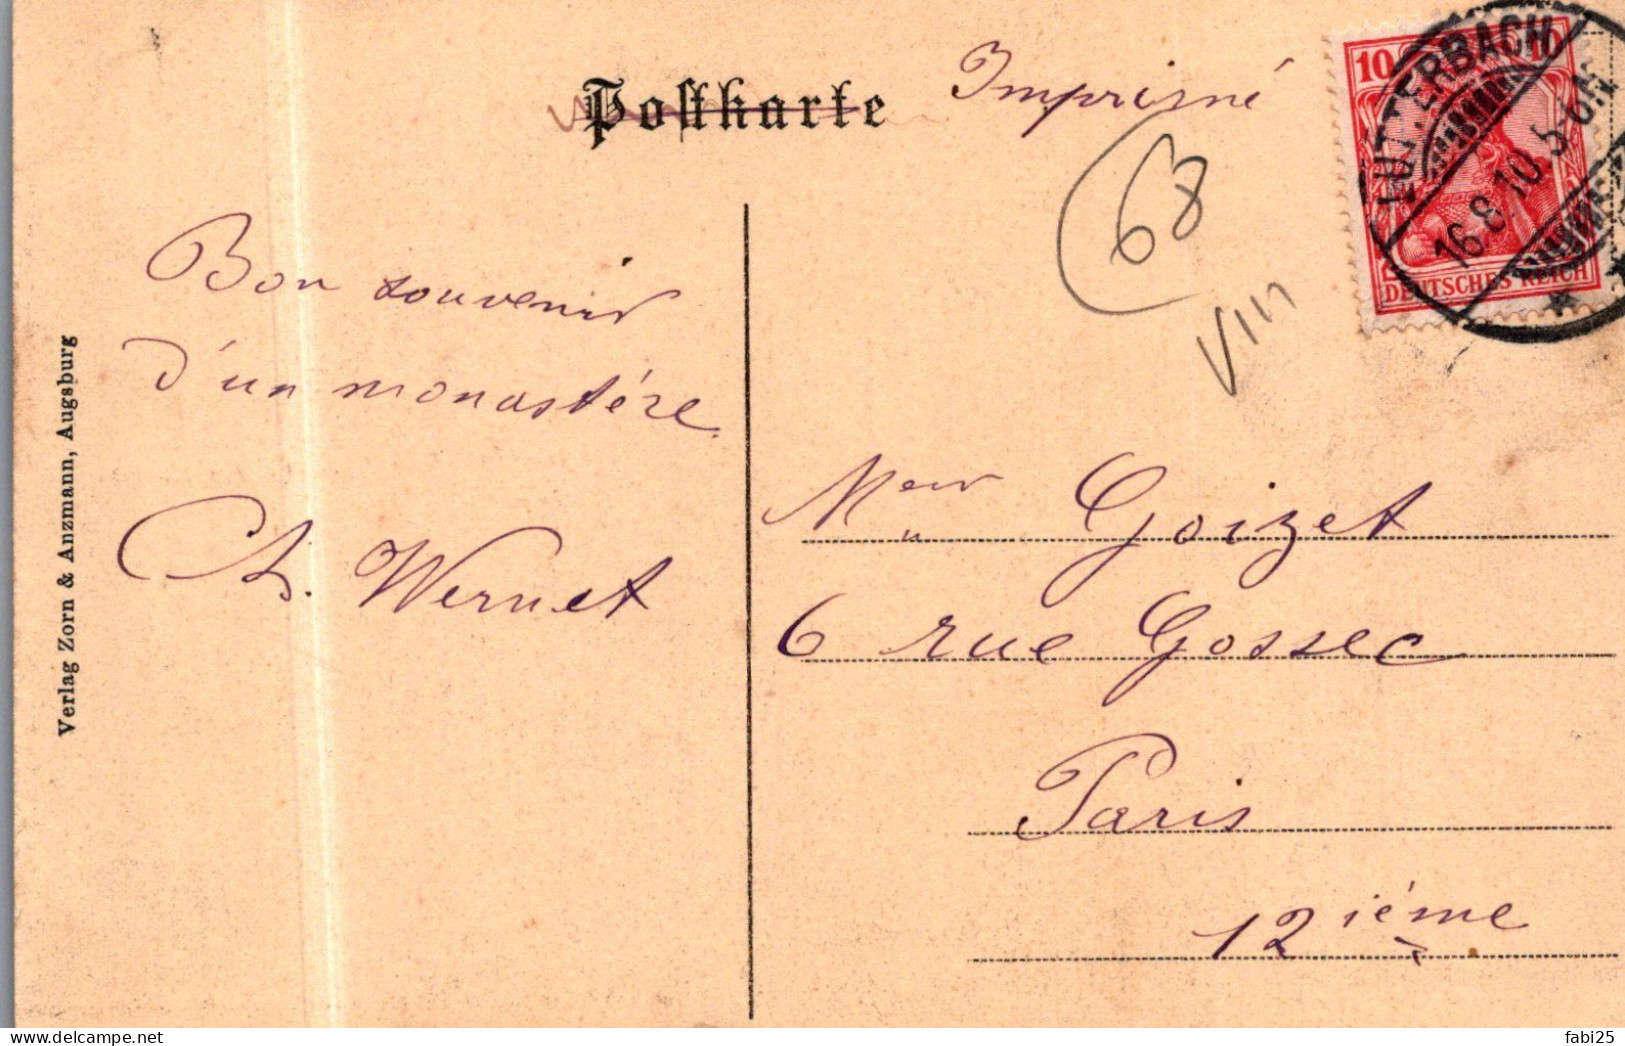 Postkarte
Imprimé
10 10
DEUTSCHES REICH
LUTTERBACH
16.8.10 5-6N
68
VIII
Bon souvenir
d'un monastére
Ch. Wernet
Goizet
6 rue Gossec
Paris
12 iéme
Verlag Zorn & Anzmann, Augsburg
delcampe.net
fabi25